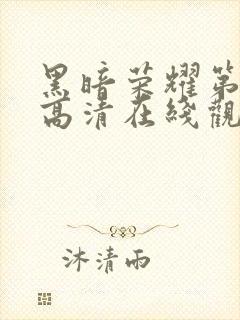 黑暗荣耀第
高清在线觀
沐清雨